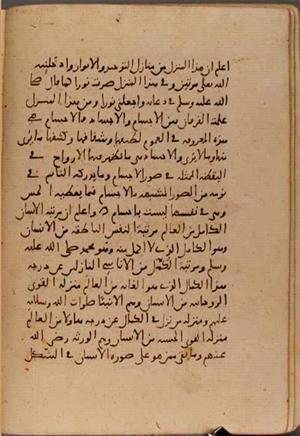 اعلم ان هذا المنزل من منازل التوحيد والانوار وادخلنيه
الله تعلى مرتين وفي هذا المنزل صرت نورا كما قال صلى
الله عليه وسلم في دعائه واجعلني نورا ومن هذا المنزل
علمت الفرقان بين الاجسام والاجساد فالاجسام هي
هذه المعروفة في العموم لطيفها وشفافها وكثيفها ما يرى
منها وما لا يرى والاجساد هي ما تظهر فيها الارواح في
اليقظة الممثلة في صور الاجسام وما يدركه النائم في
نومه من الصور المشبهة بالاجسام فيما يعطيه الحس
وهي في نفسها ليست باجسام واعلم ان مرتبة الانسان
الكامل من العالم مرتبة النفس الناطقة من الانسان
وهو الكامل الذي لا اكمل منه وهو محمد صلى الله عليه
وسلم ومرتبة الكمل من الاناسي النازلين عن درجة
هذا الكمال الذي هو الغاية من العالم منزلة القوى
الروحانية من الانسان وهم الانبياء صلوات الله وسلامه
عليهم ومنزلة من نزل في الكمال عن درجة هاولاء من العالم
منزلة القوى الحسية من الانسان وهم الورثة رضي الله
عنهم وما بقي ممن هو على صورة الانسان في الشكل